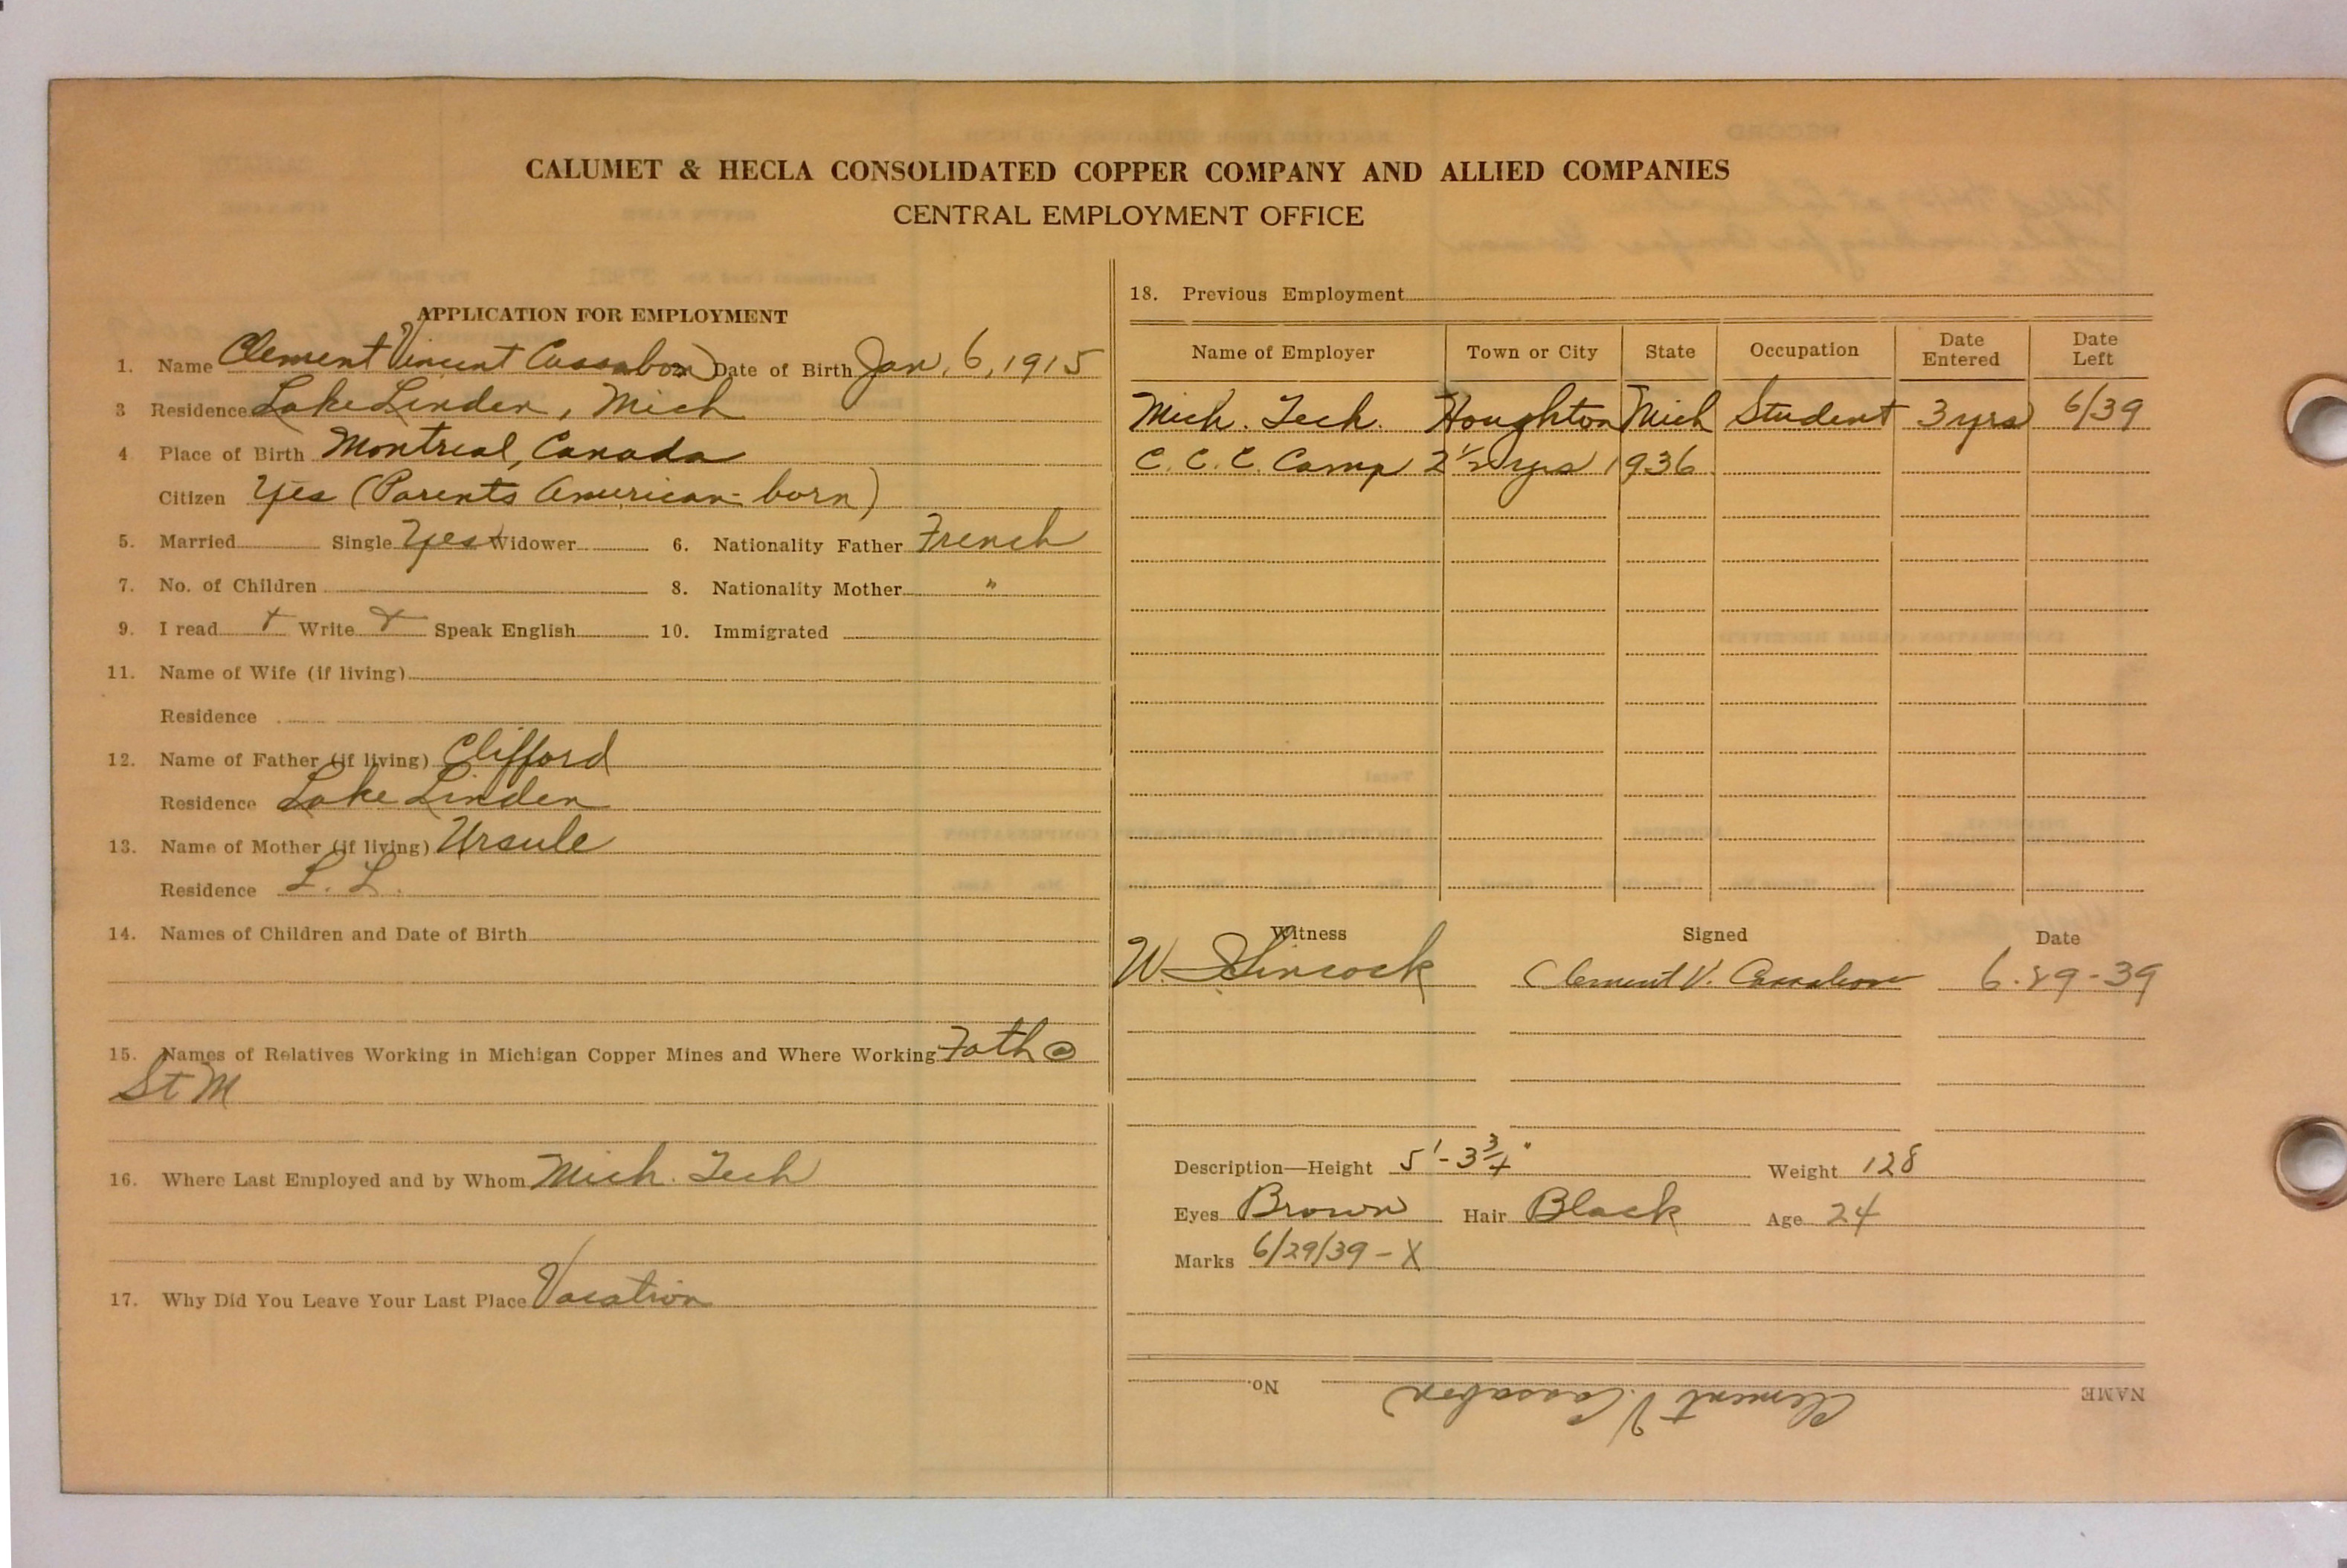 CALUMET & HECLA CONSOLIDATED COPPER COMPANY AND ALLIED COMPANIES
CENTRAL EMPLOYMENT OFFICE
APPLICATION FOR EMPLOYMENT
1. Name Clement Vincent Cassabon Date of Birth Jan. 6, 1915
3 Residence Lake Linden, Mich
4 Place of Birth Montreal, Canada
Citizen Yes (Parents American-born)
5. Married Single Yes Widower 6. Nationality Father French
7. No. of Children 8. Nationality Mother "
9. I read + Write + Speak English 10. Immigrated
11. Name of Wife (if living)
Residence
12. Name of Father (if living) Clifford
Residence Lake Linden
13. Name of Mother (if living) Ursule
Residence L. L.
14. Names of Children and Date of Birth
15. Names of Relatives Working in Michigan Copper Mines and Where Working Fath @
St M
16. Where Last Employed and by Whom Mich. Tech
17. Why Did You Leave Your Last Place Vacation
18. Previous Employment
Name of Employer Town or City State Occupation Date Entered Date Left
Mich. Tech. Houghton Mich Student 3 yrs 6/39
C. C. C. Camp 2 1/2 yrs 1936
Witness Signed Date
W. Clement V. Cassabon 6-29-39
Description—Height 5'-3 3/4" Weight 128
Eyes Brown Hair Black Age 24
Marks 6/29/39 - X
NAME Clement V. Cassabon No.